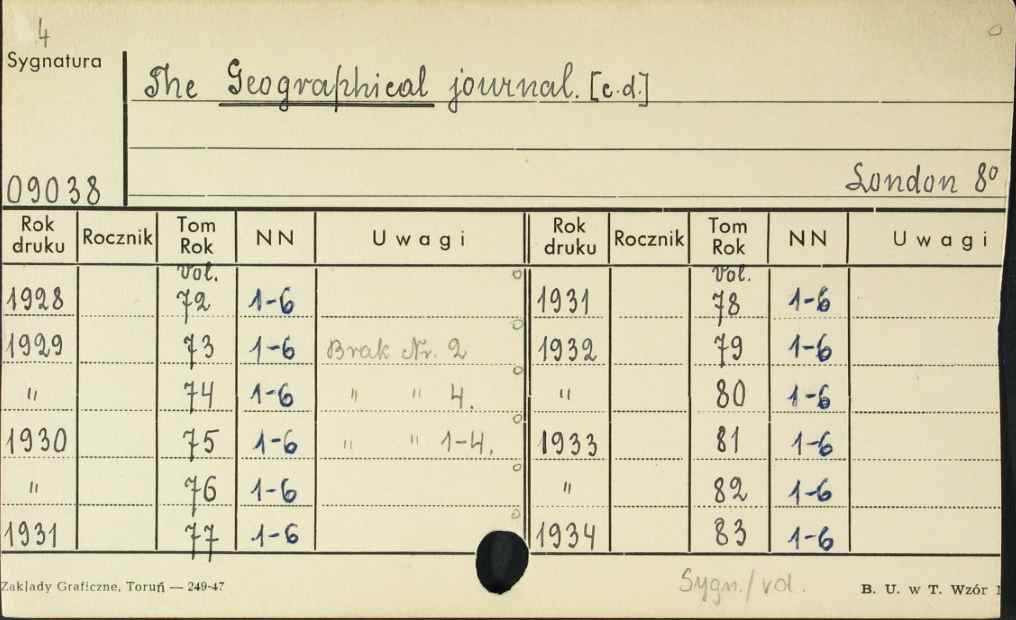 4
Sygnatura
The Geographical journal. [c.d.]
London 8º
09038
Rok druku Rocznik Tom Rok NN Uwagi Rok druku Rocznik Tom Rok NN Uwagi
Vol. Vol.
1928 72 1-6 1931 78 1-6
1929 73 1-6 Brak Nr. 2 1932 79 1-6
" 74 1-6 " " 4. " 80 1-6
1930 75 1-6 " " 1-4. 1933 81 1-6
" 76 1-6 " 82 1-6
1931 77 1-6 1934 83 1-6
Zaklady Graficzne, Toruń — 249-47
Sygn./vol.
B. U. w T. Wzór